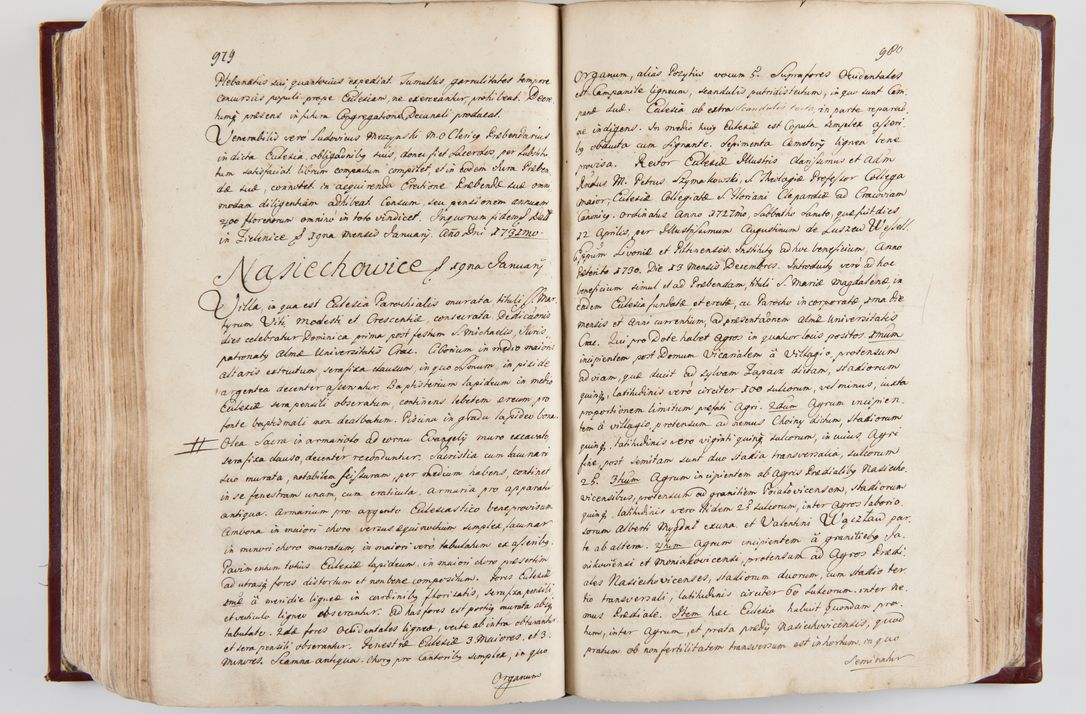 979
Plebanatus sui quantocius expediat. Tumultus, garrulitates tempore
concursus populi prope Ecclesiam, ne exerceantur, prohibeat. Decre
tumq præsens in futura Congregatione Decanali producat.
Venerabilis vero Ludovicus Męczynski M.O. Clericq Præbendarius
in dicta Ecclesia, obligaõnibq suis, donec fiet Sacerdos, per substitu
tum satisfaciat, librum computum comparet, et in eodem Jura Præben
dæ suæ, connotet, in acquirenda Oretione Præbendæ suæ omni
modam diligentiam adhibeat Censum, seu pensionem annuam
200 florenorum omnino in toto vindicet. In quorum fidem Dat
in Zielenice d 19na mensis Januarij. Año Dni 1731mo.
Nasiechowice d 19na Januarij
Villa, in qua est Ecclesia Parochialis murata tituli SS. Mar
tyrum Viti, Modesti et Crescentiæ, consecrata. Dedicaõnis
dies celebratur Dominica prima post festum S. Michaelis, Juris
patronatq Almæ Universitatis Crac. Ciborium in medio maioris
altaris extructum, sera fixa clausum, in quo SSmum, in pixide
argentea decenter asservatur. Baptisterium lapideum in medio
Ecclesiæ sera pensili obseratum, continens lebetem æreum pro
fonte baptismali non dealbatum. Piscina in gradu lapideo bona.
# Olea Sacra in armariolo ad cornu Evangelij muro excavato,
sera fixa clauso, decenter reconduntur. Sacristia cum lacunari
suo murata, notabilem scissuram, per medium habens, continet
in se fenestram unam, cum craticula. Armaria pro apparatu
antiqua. Armarium pro argento Ecclesiastico bene provisum
Ambona in maiori choro versus æquinoctium simplex, lacunar
in minori choro muratum, in maiori verò tabulatum ex asseribq.
Pavimentum totius Ecclesiæ lapideum, in maiori choro præsertim
ad utrasq fores distortum et non bene compositum. Fores Ecclesiæ
1mæ à meridie ligneæ in cardinibq floridatis, sera fixa pensili
et vehiculo ligneo obserantur. Ad has fores est porticq murata absq
tabulato. 2dæ fores Occidentales ligneæ, vecte ab intra obturantur
et sera pensili obserantur. Fenestræ Ecclesiæ 3. Maiores, et 3.
minores. Scamna antiqua. Chorq pro Cantoribq simplex, in quo
Organum
980
Organum, alias Pozytiv vocum 5. Supra fores Occidentales
est Campanile ligneum, scandulis putridis tectum, in quo sunt Cam
panæ duæ. Ecclesia ab extra scandulis tecta, in parte reparaõ
ne indigens. In medio huiq Ecclesiæ est Copula simplex asseri
bq obducta cum Signante. Sepimenta Cæmeterij lignea bene
provisa. Rector Ecclesiæ Illustris Clarissimus et Adm
Rndus M. Petrus Szymakowski, S. Theologiæ Professor Collega
maior, Ecclesiæ Collegiatæ S. Floriani Clepardiæ ad Cracoviam
Canonicq. Ordinatus Anno 1727mo, Sabbatho Sancto, quæ fuit dies
12 Aprilis, per Illustrissimum Augustinum de Luszew Wessell.
Eppum Livoniæ et Piltinensis. Institutq ad hoc beneficium, Anno
præterito 1730. Die 13 Mensis Decembris. Introductq verò ad hoc
beneficium simul et ad Præbendam, tituli S. Mariæ Magdalenæ, in
eadem Ecclesia fundatæ et erectæ, ac Parocho incorporatæ, 1ma die
mensis et Anni currentium, ad præsentaõnem Almæ Universitatis
Crac. Qui pro Dote habet Agros in quatuor locis positos. 1mum
incipientem post Domum Vicarialem à Villagio, protensum
ad viam, quæ ducit ad sylvam Zapacz dictam, stadiorum
quinq, latitudinis verò circiter 100 sulcorum, vel minus, iuxta
proportionem limitum præfati Agri. 2dum Agrum incipien
tem à villagio, protensum ad nemus Choiny dictum, stadiorum
quinq, latitudinis vero viginti quinq sulcorum, in cuius Agri
fine, post Semitam sunt duo stadia transversalia, sulcorum
25. 3tium Agrum incipientem ab Agris Prædialibq Nasiecho
vicensibus, protensum ad granitiem Pojałovicensem, stadiorum
quinq. latitudinis vero itidem 25 sulcorum, inter Agros laborio
sorum Alberti Mygdał ex una, et Valentini Węzław par
te ab altera. 4tum Agrum incipientem à granitiebq Ja
nikoviensi et Moniakovicensi, protensum ad Agros Prædi
ales Nasiechovicenses, stadiorum duorum, cum stadio ter
tio transversali, latitudinis circiter 60 sulcorum, inter ne
mus Prædiale. Item hæc Ecclesia habuit quondam pra
tum, inter Agrum, et prata prædij Nasiechovicensis, quod
pratum ob non fertilitatem transversum est in hortum, in quo
Seminatur